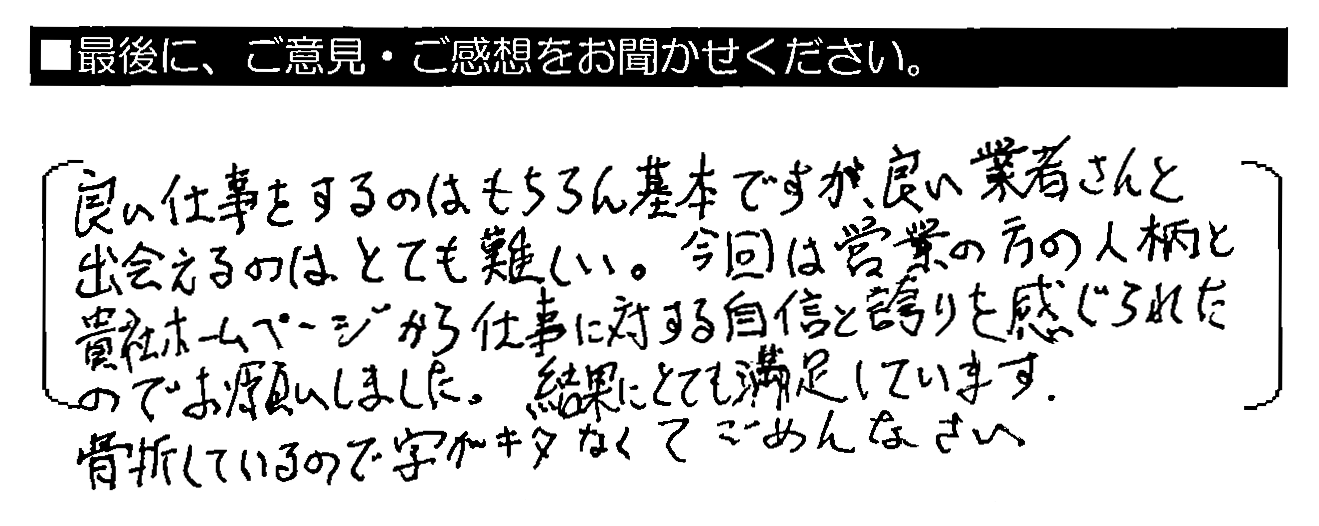 ■最後に、ご意見・ご感想をお聞かせください。
良い仕事をするのはもちろん基本ですが、良い業者さんと
出会えるのはとても難しい。今回は営業の方の人柄と
貴社ホームページから仕事に対する自信と誇りを感じられた
のでお願いしました。結果にとても満足しています.
骨折しているので字がキタなくてごめんなさい